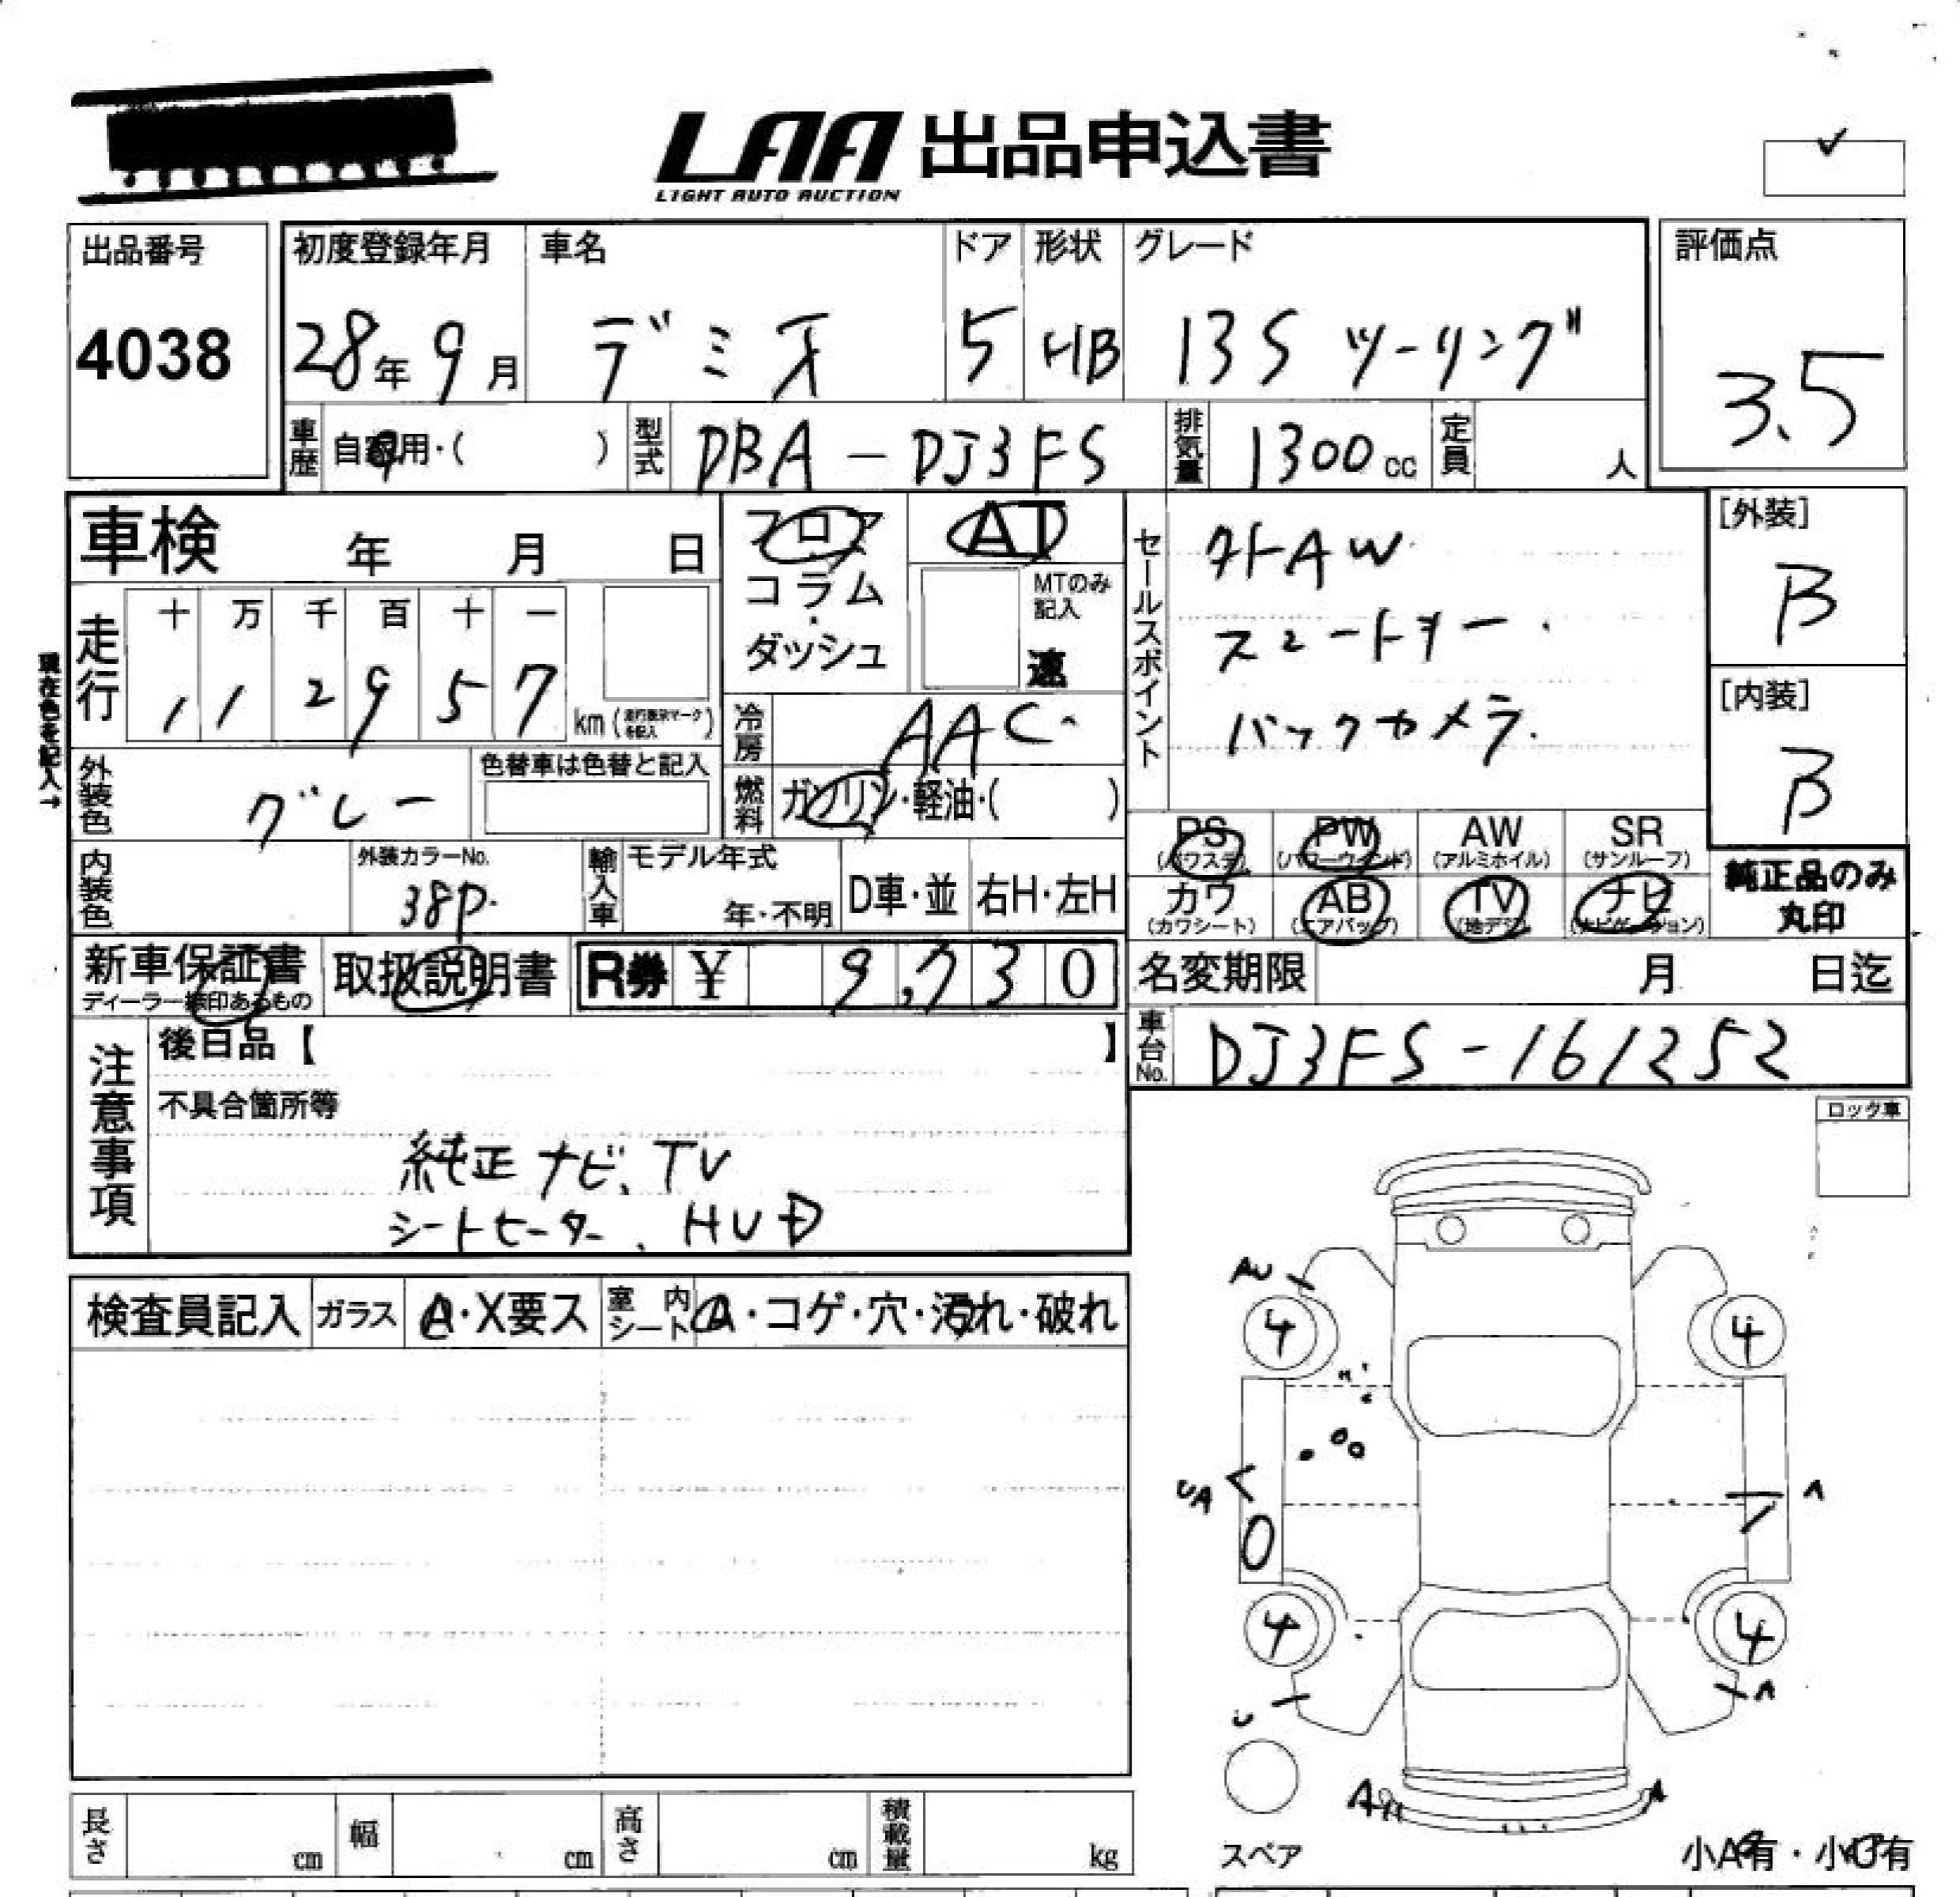 LAA 出品申込書
LIGHT AUTO AUCTION
出品番号
4038
初度登録年月
28年 9月
車名
デミオ
ドア
5
形状
HB
グレード
13S ツーリング
評価点
3.5
車歴 自家用・( )
型式 DBA-DJ3FS
排気量 1300cc
定員 人
車検 年 月 日
フロア
コラム
・
ダッシュ
AT
MTのみ
記入
速
セールスポイント
外AW
スマートキー.
バックカメラ.
[外装]
B
[内装]
B
現在色を記入→
走行
十 万 千 百 十 一
1 1 2 9 5 7
km (走行表示マークを記入)
冷房 AAC
燃料 ガソリン・軽油・( )
外装色 グレー
色替車は色替と記入
内装色
外装カラーNo.
38P.
輸入車
モデル年式
年・不明
D車・並
右H・左H
PS (パワステ)
PW (パワーウインド)
AW (アルミホイル)
SR (サンルーフ)
カワ (カワシート)
AB (エアバッグ)
TV (地デジ)
ナビ (ナビゲーション)
純正品のみ
丸印
新車保証書
ディーラー捺印あるもの
取扱説明書
R券 ¥ 9,730
名変期限 月 日迄
車台No. DJ3FS-161252
注意事項
後日品【 】
不具合箇所等
純正ナビ、TV
シートヒーター、HUD
ロック車
検査員記入
ガラス A・X要ス
室内シート A・コゲ・穴・汚れ・破れ
AU
4 4
UA
A
4 4
U
A
A
A
スペア
小A有・小U有
長さ cm
幅 cm
高さ cm
積載量 kg